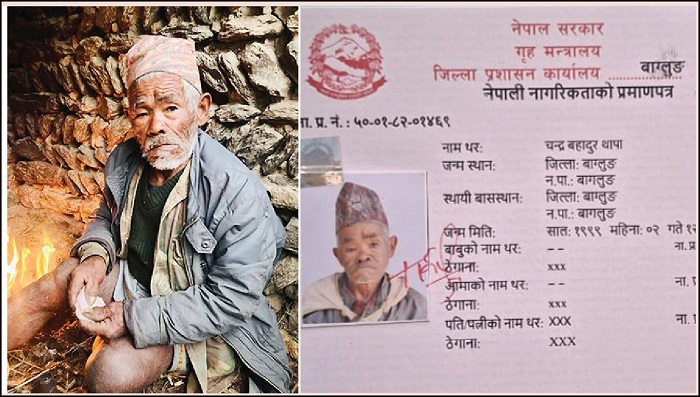 नेपाल सरकार
गृह मन्त्रालय
जिल्ला प्रशासन कार्यालय बाग्लुङ
नेपाली नागरिकताको प्रमाणपत्र
ना. प्र. नं. : ५०-०१-८२-०१४६९
नाम थर: चन्द्र बहादुर थापा
जन्म स्थान: जिल्ला: बाग्लुङ
न.पा.: बागलुङ
स्थायी बासस्थान: जिल्ला: बाग्लुङ
न.पा.: बागलुङ
जन्म मिति: साल: १९९९ महिना: ०२ गते १२
बाबुको नाम थर: -- ना.प्र
ठेगाना: xxx
आमाको नाम थर: -- ना.
ठेगाना: xxx
पति/पत्नीको नाम थर: XXX ना.
ठेगाना: XXX